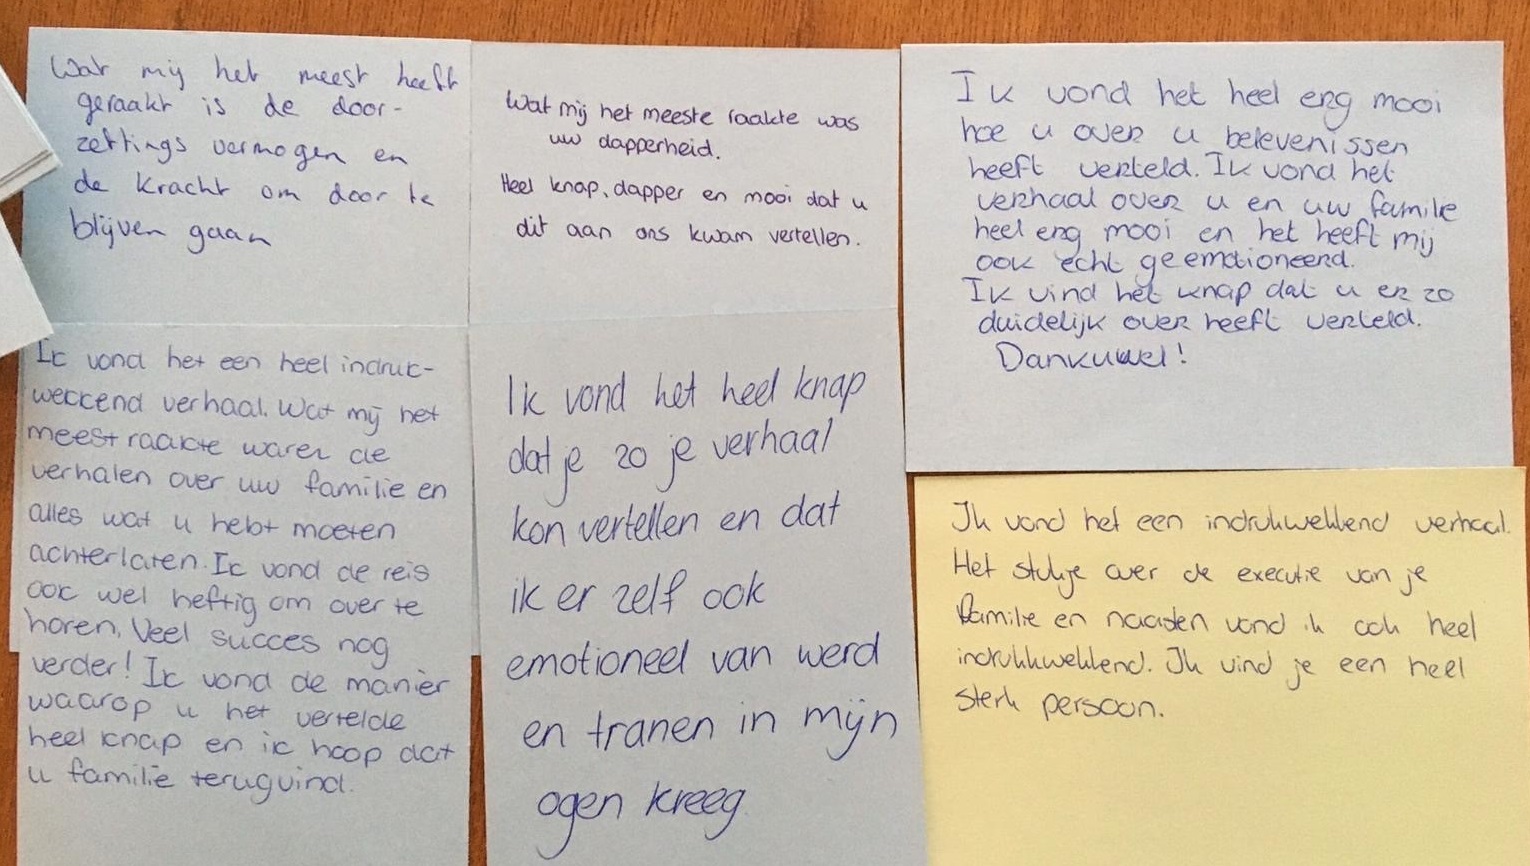 Wat mij het meest heeft
geraakt is de door-
zettings vermogen en
de kracht om door te
blijven gaan
Wat mij het meeste raakte was
uw dapperheid.
Heel knap, dapper en mooi dat u
dit aan ons kwam vertellen.
Ik vond het heel erg mooi
hoe u over u belevenissen
heeft verteld. Ik vond het
verhaal over u en uw familie
heel erg mooi en het heeft mij
ook echt geemotioneerd.
Ik vind het knap dat u er zo
duidelijk over heeft verteld.
Dankuwel!
Ik vond het een heel indruk-
wekkend verhaal. Wat mij het
meest raakte waren de
verhalen over uw familie en
alles wat u hebt moeten
achterlaten. Ik vond de reis
ook wel heftig om over te
horen. Veel succes nog
verder! Ik vond de manier
waarop u het vertelde
heel knap en ik hoop dat
u familie terugvind.
Ik vond het heel knap
dat je zo je verhaal
kon vertellen en dat
ik er zelf ook
emotioneel van werd
en tranen in mijn
ogen kreeg
Ik vond het een indrukwekkend verhaal.
Het stukje over de executie van je
familie en naasten vond ik ook heel
indrukkwekkend. Ik vind je een heel
sterk persoon.